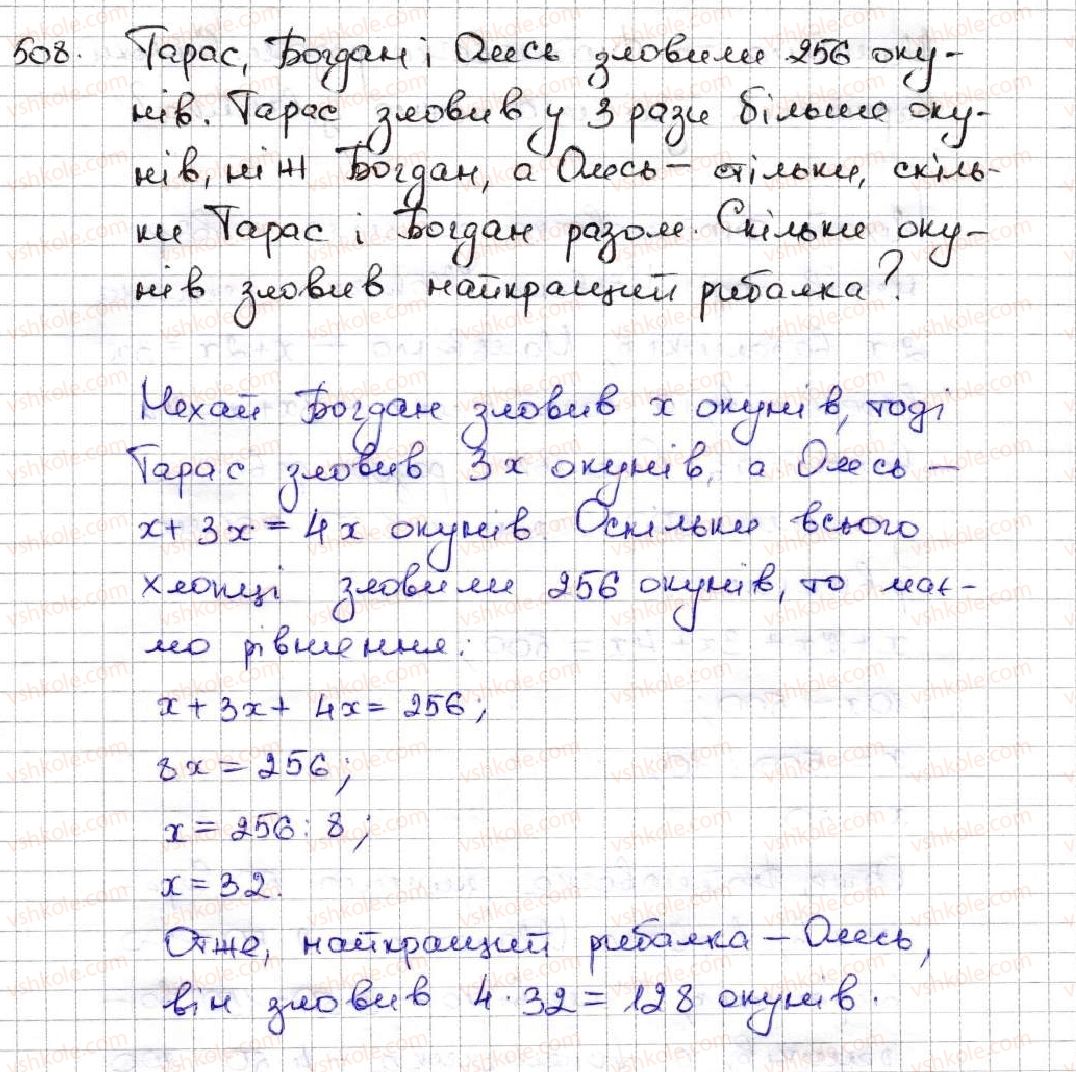 508. Тарас, Богдан і Олесь зловили 256 оку-
нів. Тарас зловив у 3 рази більше оку-
нів, ніж Богдан, а Олесь – стільки, скіль-
ки Тарас і Богдан разом. Скільки оку-
нів зловив найкращий рибалка?
Нехай Богдан зловив x окунів, тоді
Тарас зловив 3x окунів, а Олесь –
x + 3x = 4x окунів. Оскільки всього
хлопці зловили 256 окунів, то має-
мо рівняння:
x + 3x + 4x = 256;
8x = 256;
x = 256 : 8;
x = 32.
Отже, найкращий рибалка – Олесь,
він зловив 4 · 32 = 128 окунів.
vshkole.com